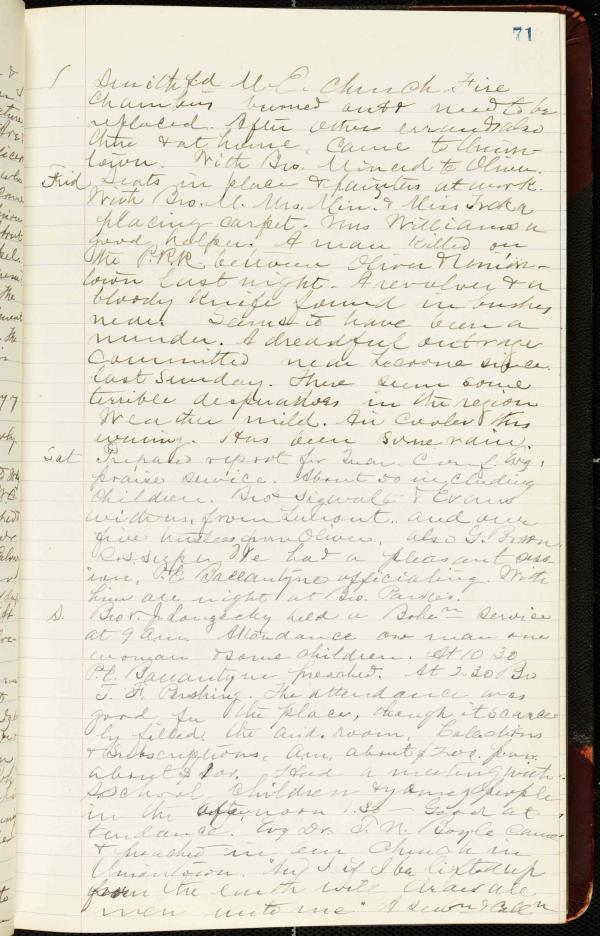 71
Smithfd M. E. Church. Fire
Chambers burned out & need to be
replaced. After other errands also
there & at home, came to Union-
town. With Bro. Minerd to Oliver.
Frid Seats in place & painters at work.
With Bro. M. Mrs. Min. & Miss
placing carpet. Mrs Williams a
good helper. A man killed on
the P.RR between Oliver & Union-
town last night. A revolver & a
bloody knife found in bushes
near. Seems to have been a
murder. A dreadful outrage
committed near Lecrone since
last Sunday. There seem some
terrible desperadoes in the region
Weather mild. Air cooler this
evening. Has been some rain.
Sat Prepare report for Quar. Conf. Evg,
praise service. About 50 including
children. Bros Sigwalt & Evans
with us, from Lemont, and our
five from Oliver, also G.
S.S. supr. We had a pleasant sess-
ion, P.E. Ballantyne officiating. With
him all night at Bro. Parkes.
S. Bro. V. J. Louzecky held a Bohen service
at 9 am. Attendance one man one
woman & some children. At 10.30
P.E. Ballantyne preached. At 2.30 Bro
T. F. Pershing. The attendance was
good for the place, though it scarce-
ly filled the aud. room. Collections
& subscriptions, am. about
about Had a meeting with
S.School children & young people
in the afternoon Good at-
tendance. Evg Dr. T. N. Boyle came
& preached in our Church in
Uniontown. "And I if I be lifted up
from the earth will draw all
men unto me" A